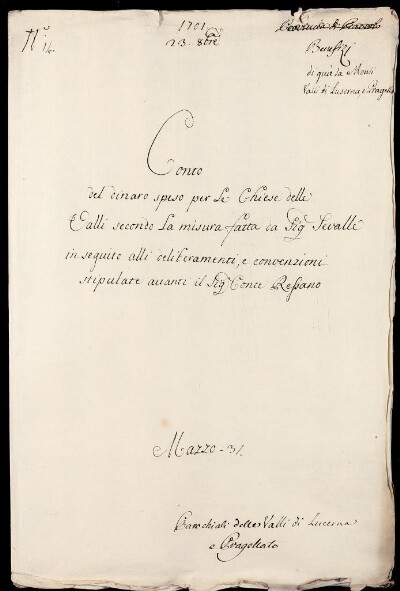 N.º 14.
1701
23. 8bre
Benefizj
di quà da Monti
Valli di Luserna, e Pragelato
Conto
del dinaro speso per Le Chiese delle
Valli secondo La misura fatta da Sig.
in seguito alli deliberamenti, e convenzioni
stipulate avanti il Sig. Conte Ressano
Mazzo - 31.
Parochiali delle Valli di Lucerna
e Pragellato